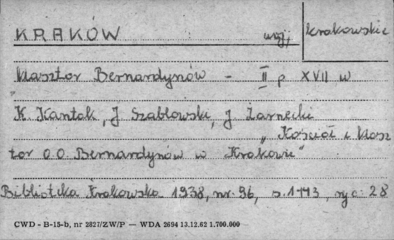 KRAKÓW woj. krakowskie
klasztor Bernardynów - II p XVII w
K. Kantak, J. Szablowski, J. Żarnecki
„Kościół i klasz
tor O.O. Bernardynów w Krakowie"
Biblioteka Krakowska 1938, nr. 96, s. 1-193, ryc. 28
CWD - B-15-b, nr 2827/ZW/P — WDA 2694 13.12.62 1.700.000